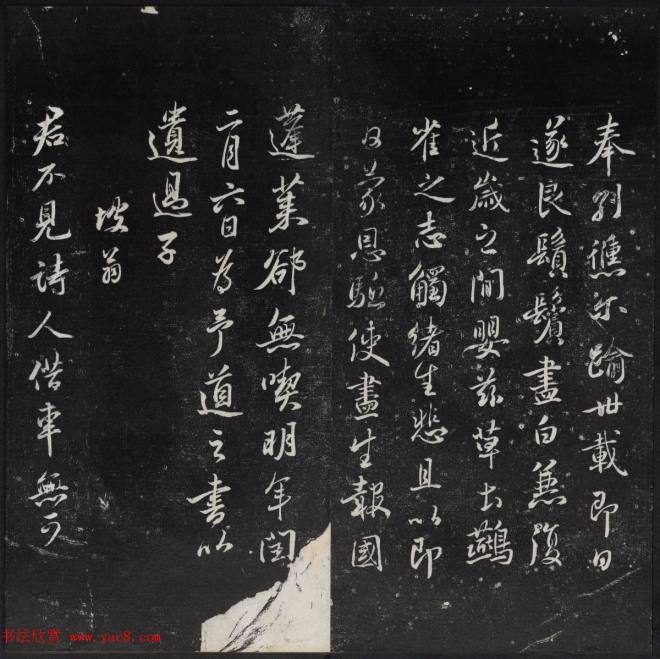 奉別憔尔踰卅載即日
遂艮鬚鬢盡白兼復
近歲之間嬰兹草土鷰
雀之志觸緒生悲且以即
日蒙恩駈使盡生報國
蓬莱郤無喫明年閏
二月六日為予道之書以
遺過子
坡翁
君不見詩人借車無可
书法欣赏 www.yac8.com